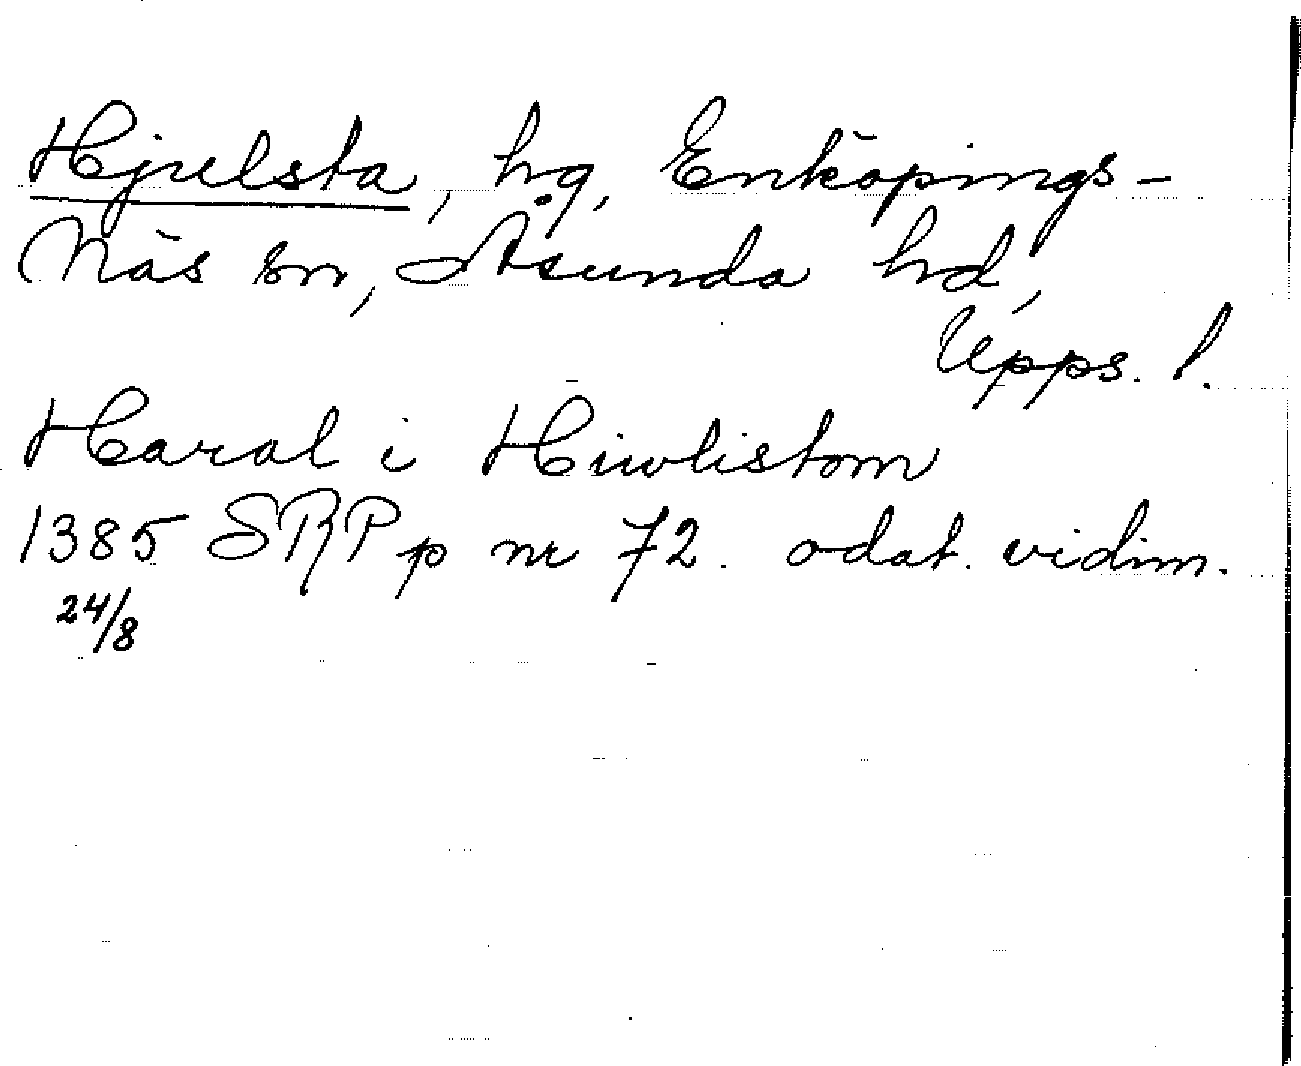 Hjulsta, hg, Enköpings-
Näs sn, Åsunda hd,
Upps. l.
Haral i Hiwlistom
1385 SRPp nr 72. odat. vidim.
24/8